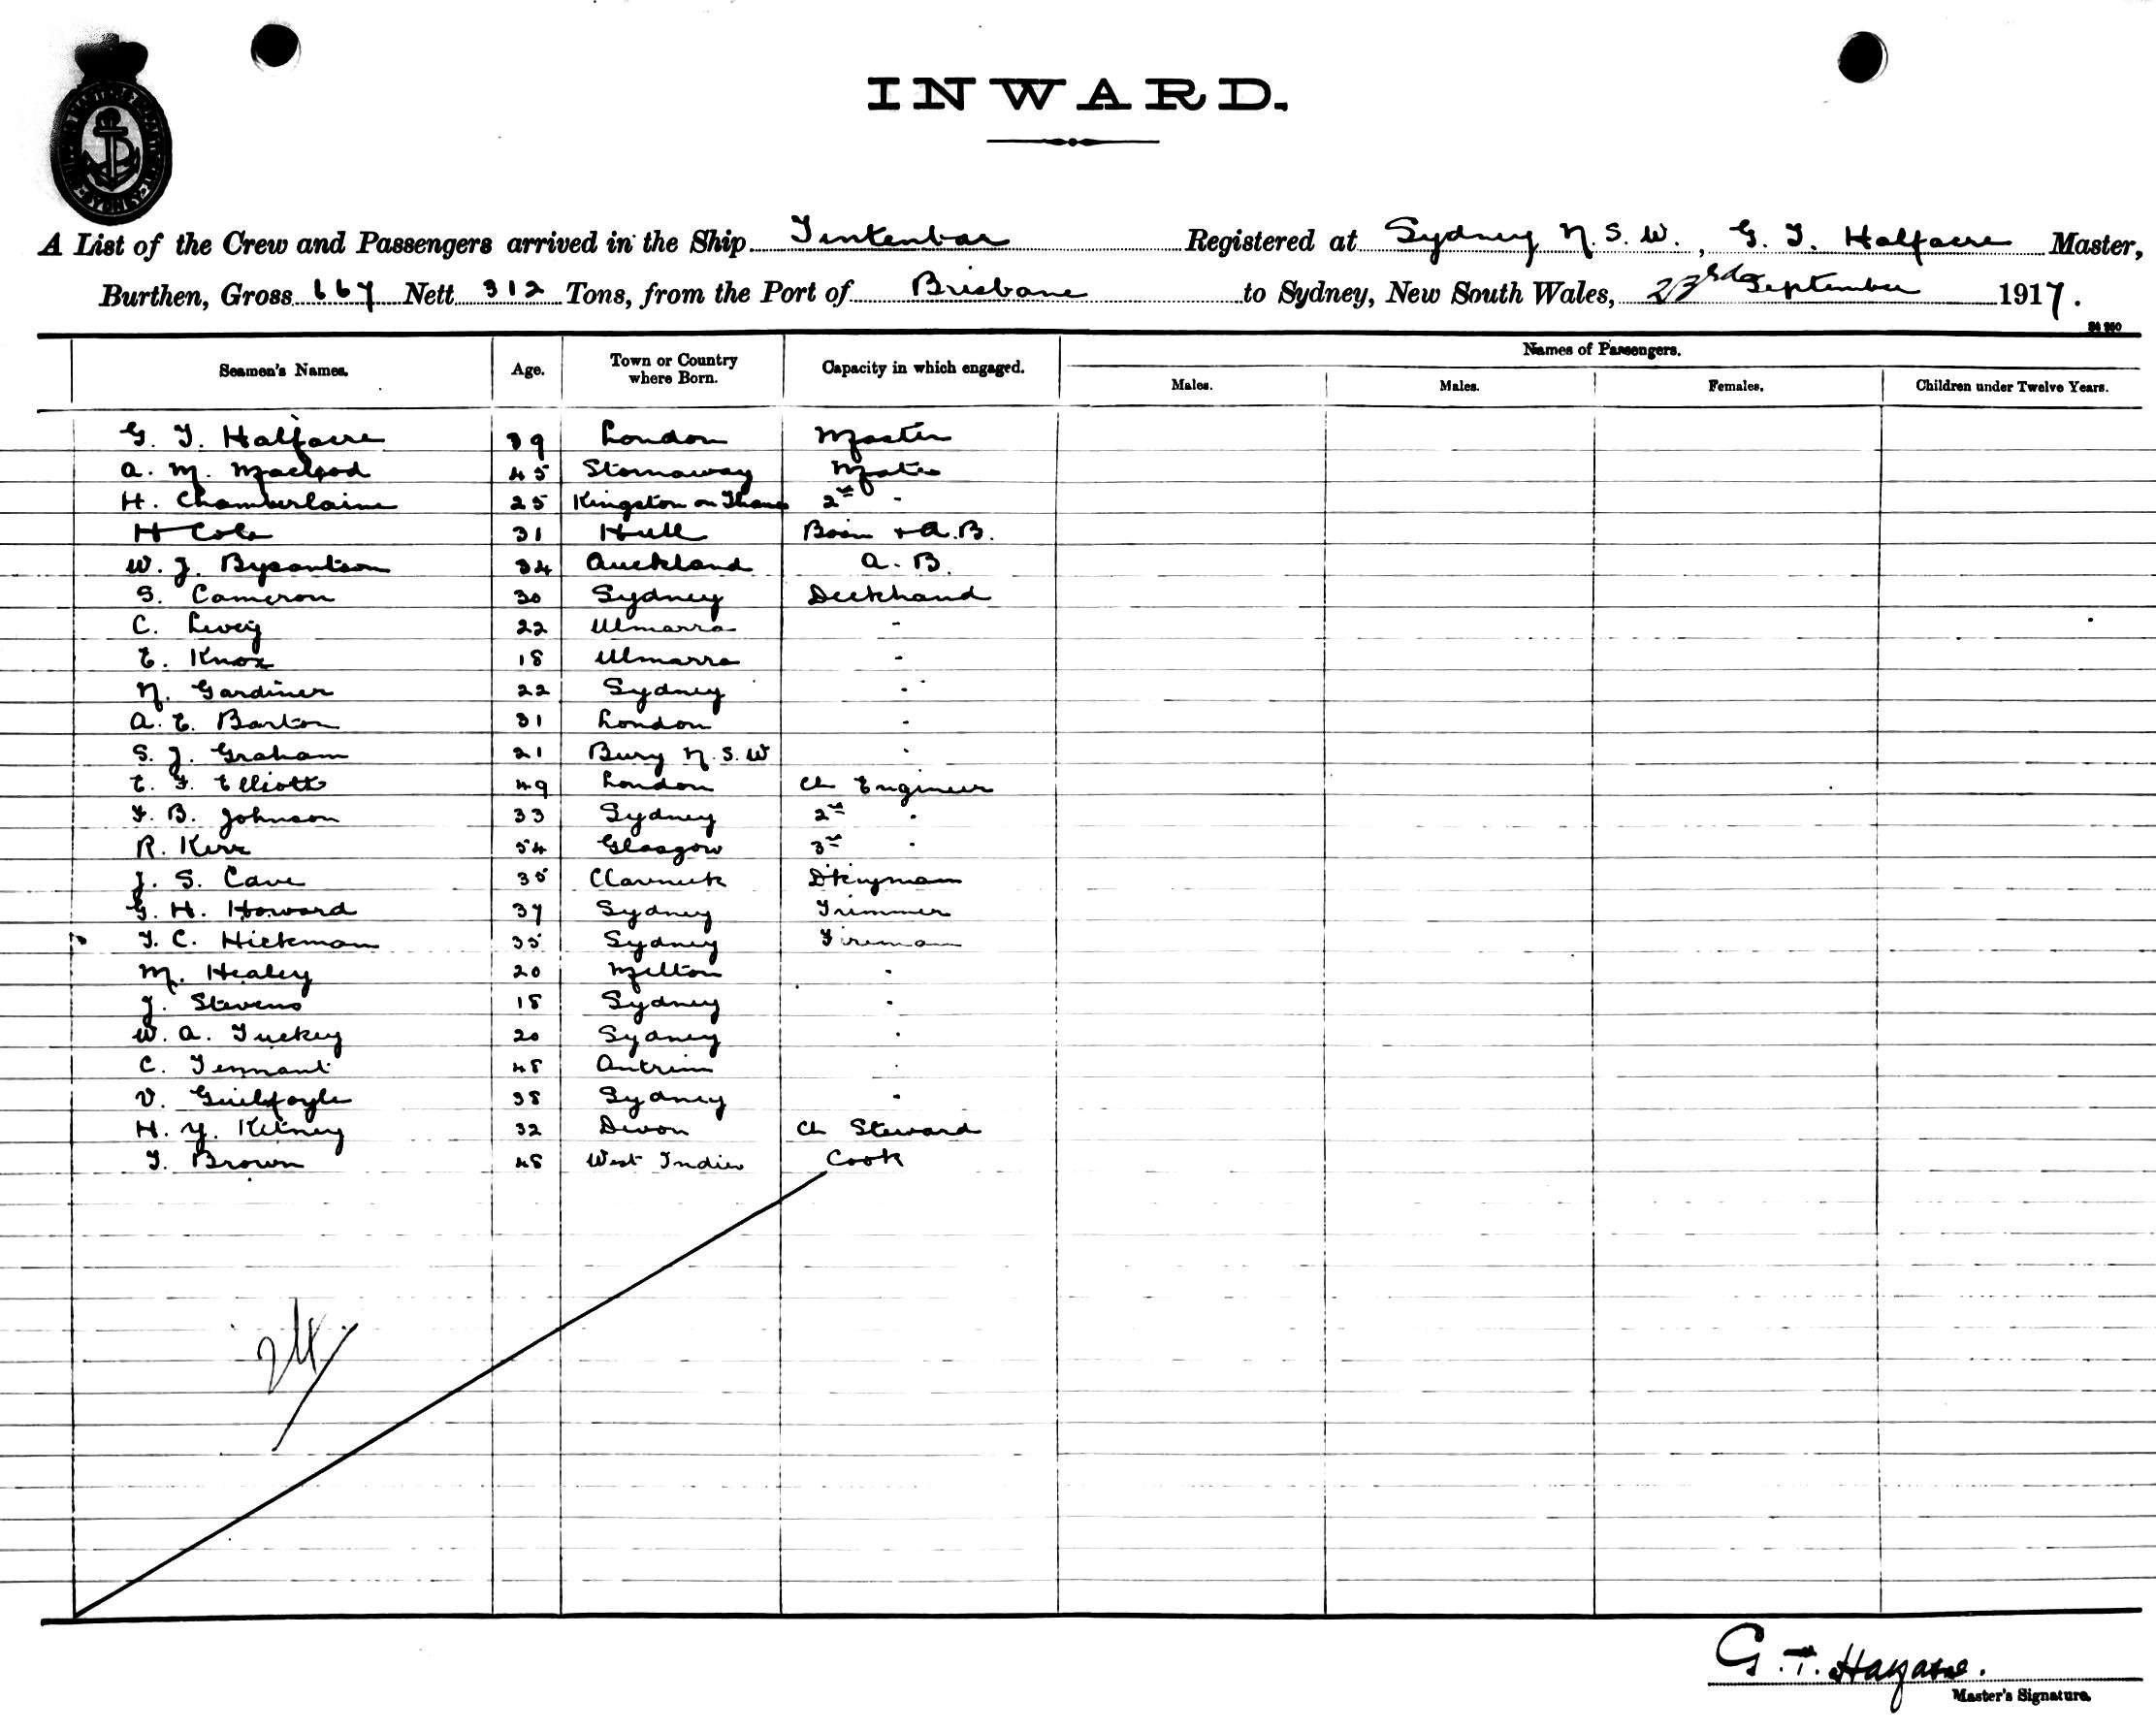 INWARD.
A List of the Crew and Passengers arrived in the Ship Tintenbar Registered at Sydney N.S.W., G. T. Halfacre Master,
Burthen, Gross 667 Nett 312 Tons, from the Port of Brisbane to Sydney, New South Wales, 23rd September 1917.
Names of Passengers.
Seamen's Names. Age. Town or Country where Born. Capacity in which engaged. Males. Males. Females. Children under Twelve Years.
G. T. Halfacre 39 London Master
A. M. Macleod 45 Stornaway Mate
H. Chamberlaine 25 Kingston on Thames 2nd -
H Cole 31 Hull Bosn + A.B.
W. J. 34 Auckland A. B.
S. Cameron 30 Sydney Deckhand
C. 22 Ulmarra -
E. Knox 18 Ulmarra -
N. Gardiner 22 Sydney -
A. E. Barton 31 London -
S. J. Graham 21 Bury N.S.W -
E. F. Elliott 49 London Ch Engineer
F. B. Johnson 33 Sydney 2nd -
R. Kerr 54 Glasgow 3rd -
J. S. Cave 35 Dkeyman
G. H. Howard 37 Sydney Trimmer
T. C. Hickman 35 Sydney Fireman
M. Healey 20 Milton -
J. Stevens 18 Sydney -
W. A. Tuckey 20 Sydney -
C. Tennant 48 Antrim -
V. Guilfoyle 38 Sydney -
H. Y. Kitney 32 Devon Ch Steward
T. Brown 48 West Indies Cook
24
G. T. Halfacre.
Master's Signature.